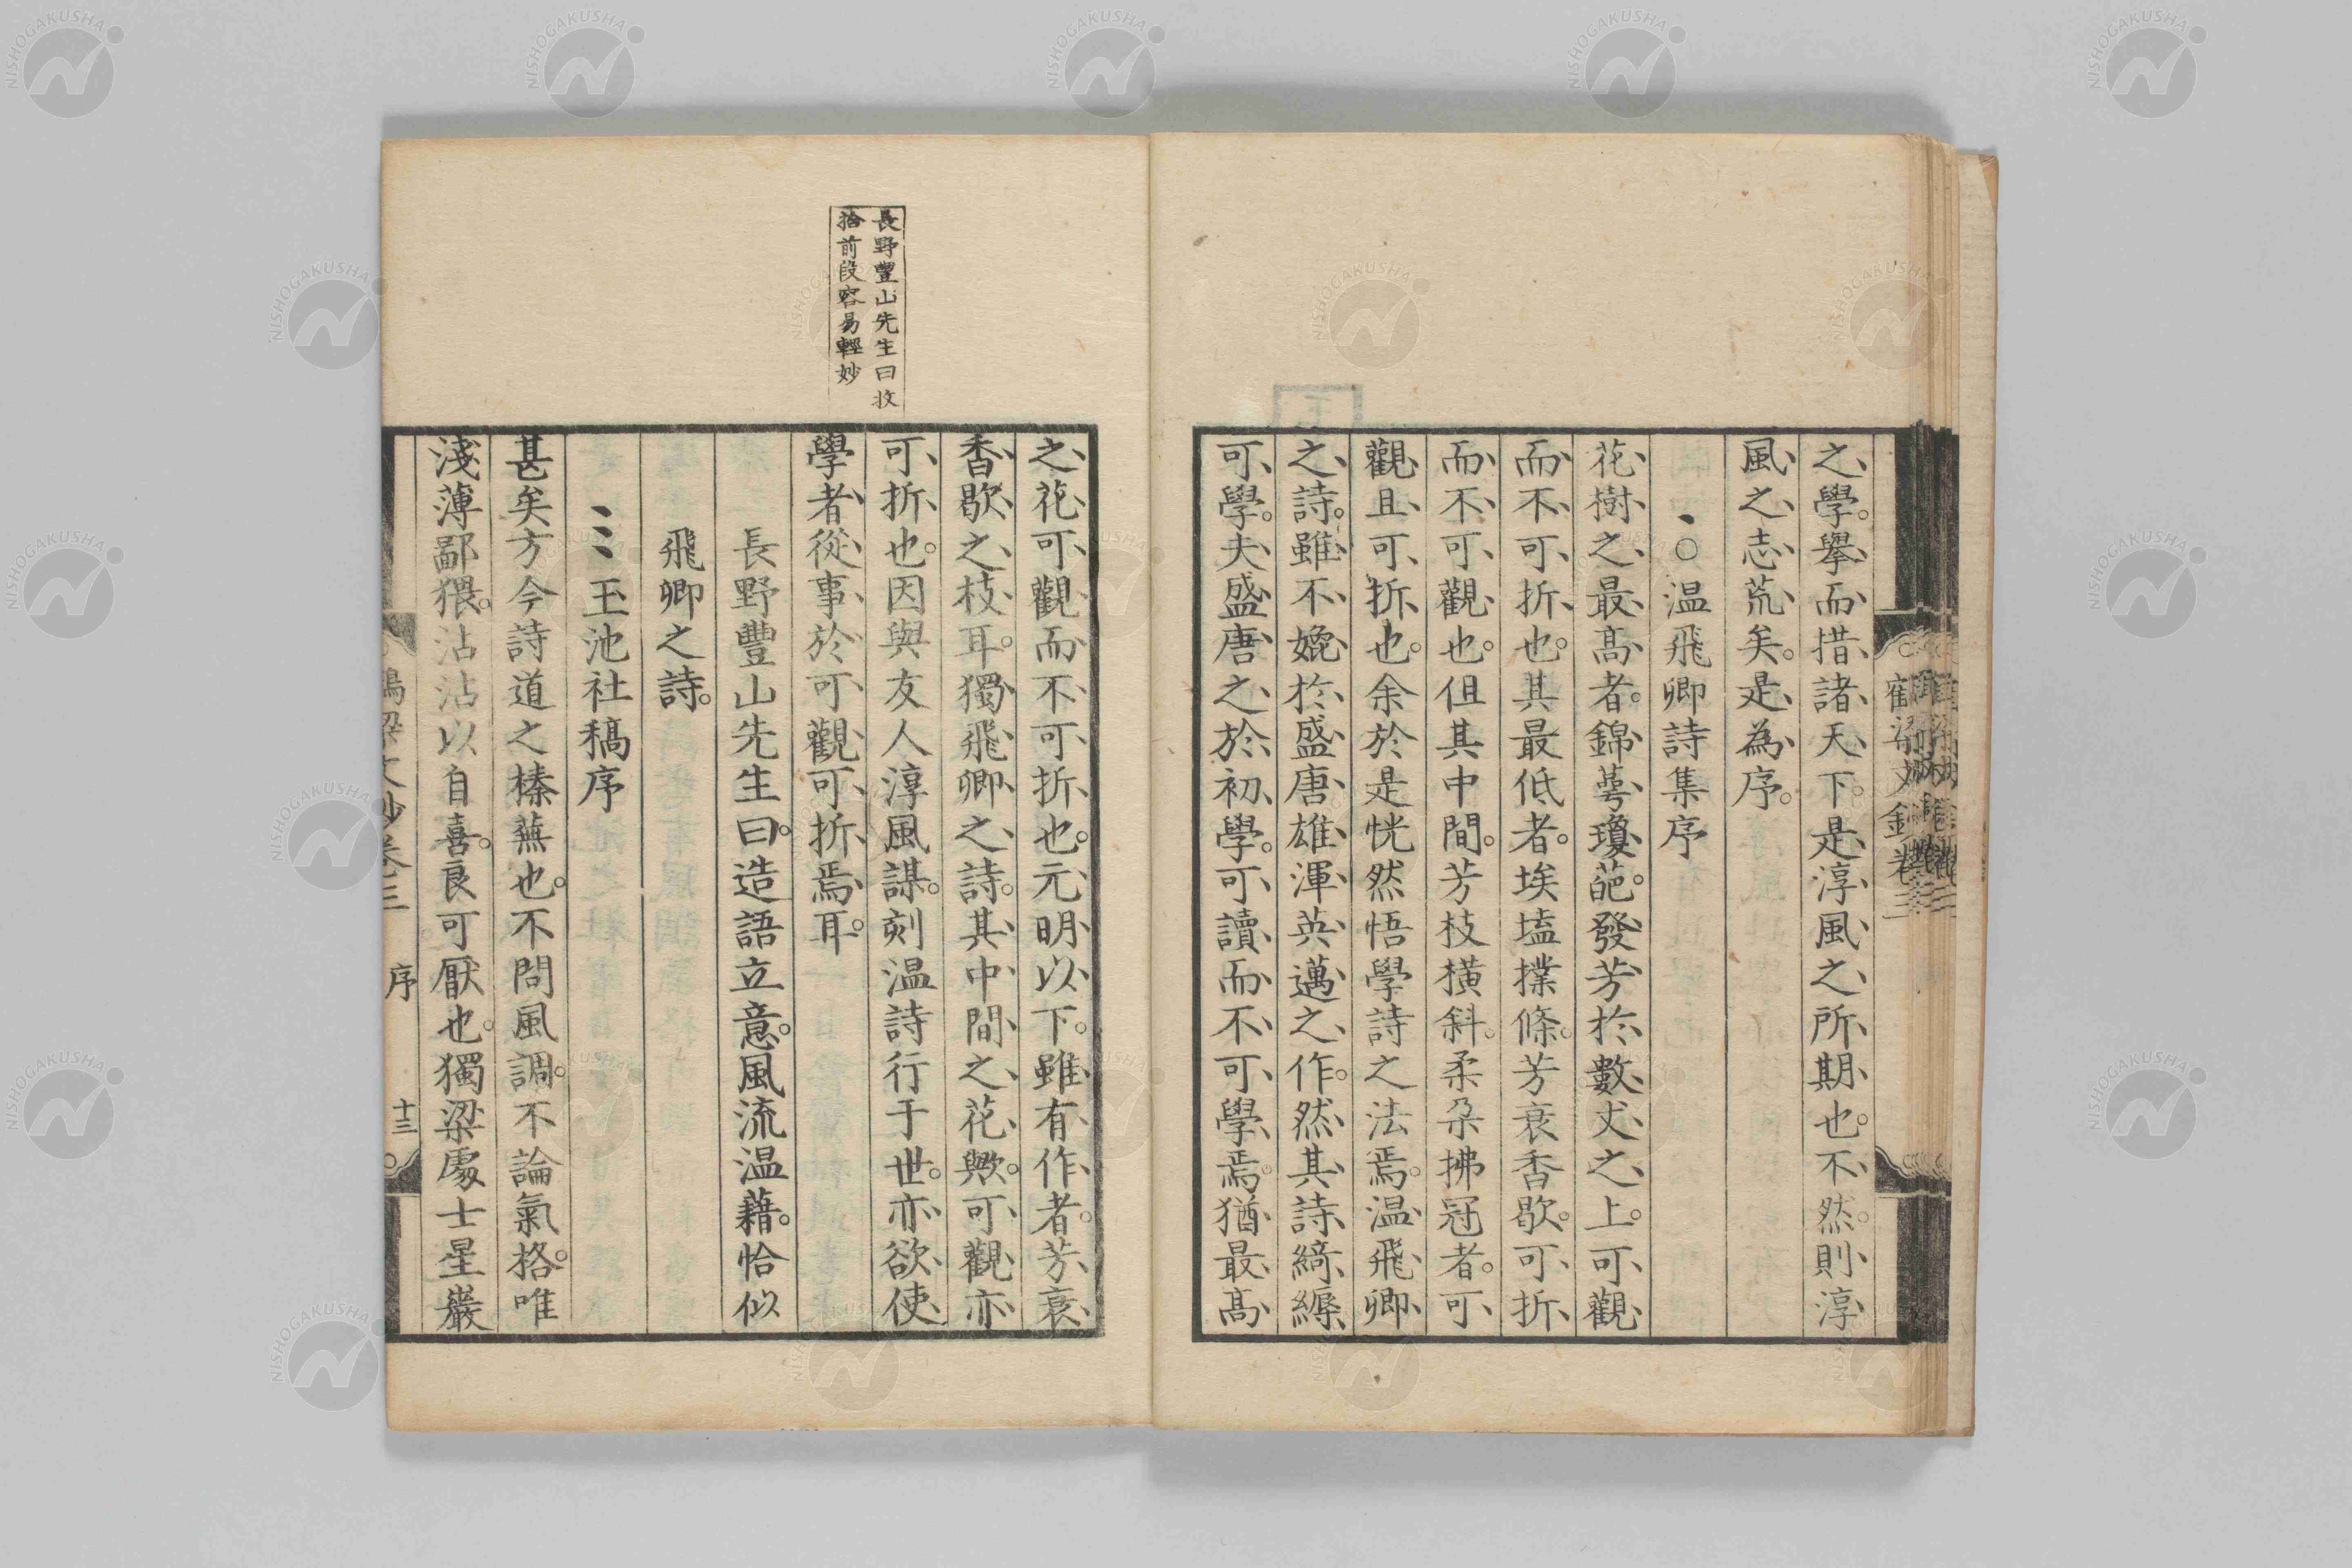 之學。擧而措諸天下。是淳風之所期也。不然。則淳
風之志荒矣。是為序。
、○温飛卿詩集序
花樹之最高者。錦萼瓊葩。發芳於數丈之上。可觀
而不可折也。其最低者。埃壒撲條。芳衰香歇。可折
而不可觀也。但其中間。芳枝橫斜。柔朶拂冠者。可
觀且可折也。余於是恍然悟學詩之法焉。温飛卿
之詩。雖不媲於盛唐雄渾英邁之作。然其詩綺縟
可學。夫盛唐之於初學。可讀而不可學焉。猶最高
之花可觀而不可折也。元明以下。雖有作者。芳衰
香歇之枝耳。獨飛卿之詩。其中間之花歟。可觀亦
可折也。因與友人淳風謀。刻温詩行于世。亦欲使
學者從事於可觀可折焉耳。
長野豐山先生曰收
拾前段容易輕妙
長野豐山先生曰。造語立意。風流温藉。恰似
飛卿之詩。
玉池社稿序
甚矣方今詩道之榛蕪也。不問風調。不論氣格。唯
淺薄鄙猥。沾沾以自喜。良可厭也。獨梁處士星巖
序
十三
NISHOGAKUSHA